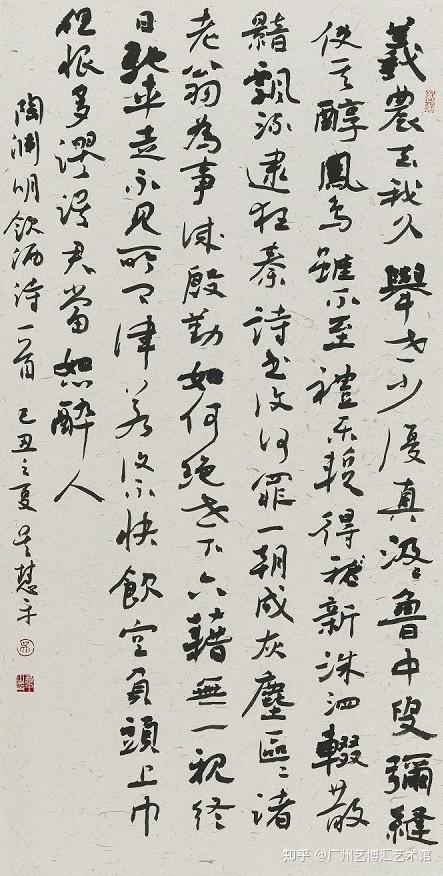 羲農去我久舉世少復真汲〻魯中叟彌縫
使其醇鳳鳥雖不至禮樂暫得新洙泗輟微
響飄流逮狂秦詩書復何罪一朝成灰塵區〻諸
老翁為事誠殷勤如何絕世下六藉無一親終
日馳車走不見所問津若復不快飲空負頭上巾
但恨多謬誤君當恕醉人
陶淵明飲酒詩一首 己丑之夏 吳慧平
知乎 @广州艺博汇艺术馆